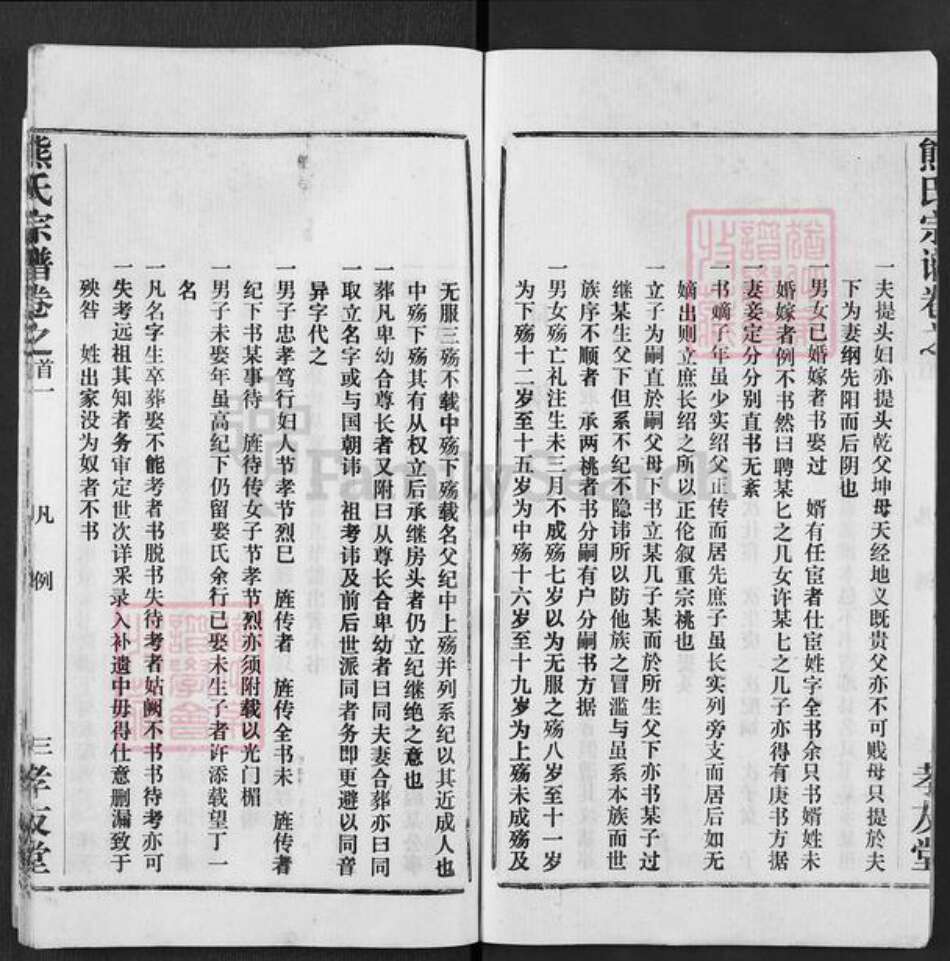 熊氏宗谱卷之
孝友堂
一夫提头妇亦提头乾父坤母天经地义既贵父亦不可贱母只提於夫
下为妻纲先阳而后阴也
一男女已婚嫁者书娶过 婿有任宦者仕宦姓字全书余只书婿姓未
婚嫁者例不书然曰聘某匕之几女许某匕之几子亦得有庚书方据
妻妾定分分别直书无紊
一书嫡子年虽少实绍父正传而居先庶子虽长实列旁支而居后如无
嫡出则立庶长绍之所以正伦叙重宗桃也
一立子为嗣直於嗣父母下书立某几子某而於所生父下亦书某子过
继某生父下但系不纪不隐讳所以防他族之冒滥与虽系本族而世
族序不顺者 承两桃者书分嗣有户分嗣书方据
一男女殇亡礼注生未三月不成殇七岁以为无服之殇八岁至十一岁
为下殇十二岁至十五岁为中殇十六岁至十九岁为上殇未成殇及
无服三殇不载中殇下殇载名父纪中上殇并列系纪以其近成人也
中殇下殇其有从权立后承继房头者仍立纪继绝之意也
一葬凡卑幼合尊长者又附曰从尊长合卑幼者曰同夫妻合葬亦曰同
一取立名字或与国朝讳 祖考讳及前后世派同者务即更避以同音
异字代之
一男子忠孝笃行妇人节孝节烈巳 旌传者 旌传全书未 旌传者
纪下书某事待 旌待传女子节孝节烈亦须附载以光门楣
一男子未娶年虽高纪下仍留娶氏余行已娶未生子者许添载望丁一
名
一凡名字生卒葬娶不能考者书脱书失待考者姑阙不书书待考亦可
一失考远祖其知者务审定世次详采录入补遗中毋得仕意删漏致于
殃咎 姓出家没为奴者不书
熊氏宗谱卷之首一
凡例
三
孝友堂
FamilySearch